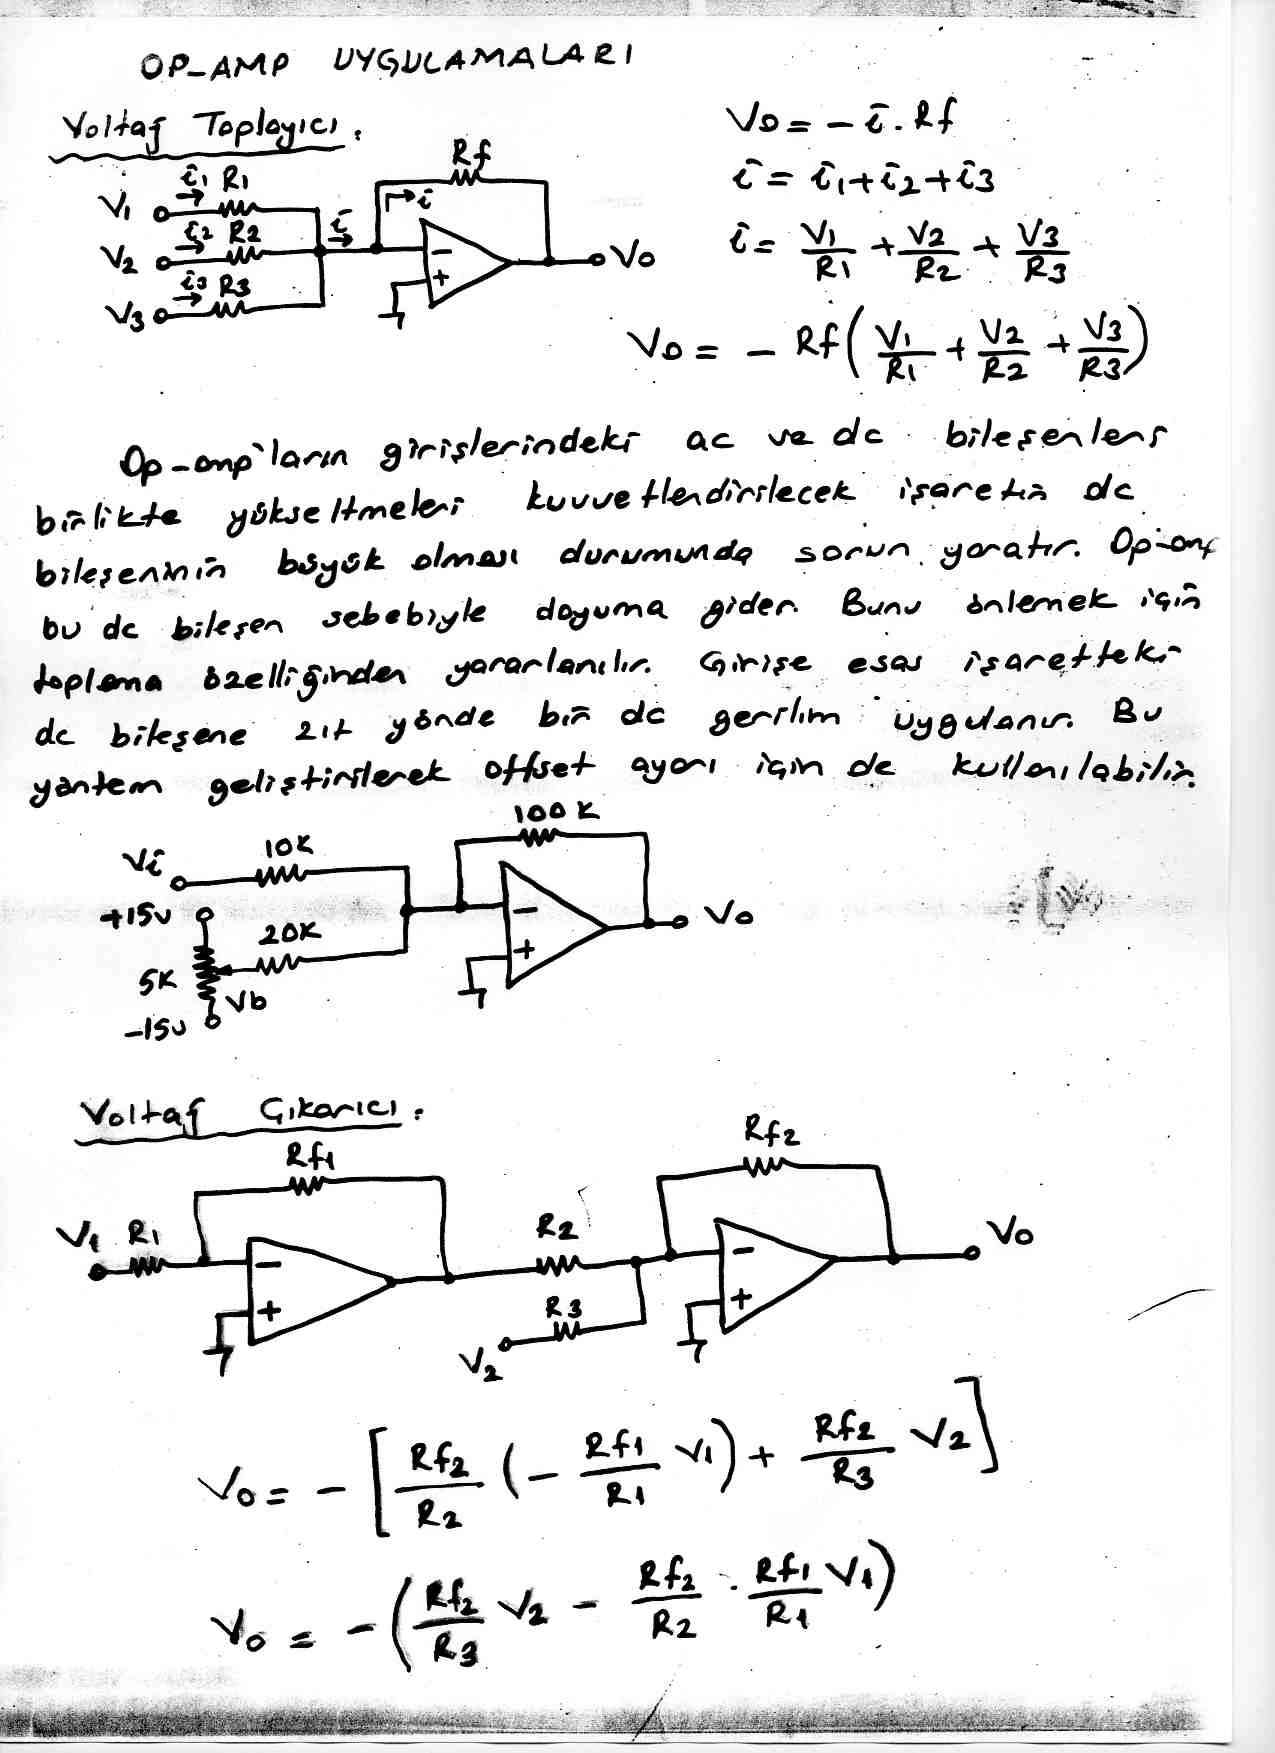 OP-AMP UYGULAMALARI
Voltaj Toplayıcı:
V1 i1 R1
V2 i2 R2
V3 i3 R3
i
i
Rf
Vo
Vo = - i . Rf
i = i1 + i2 + i3
i = V1/R1 + V2/R2 + V3/R3
Vo = - Rf ( V1/R1 + V2/R2 + V3/R3 )
Op-amp'ların girişlerindeki ac ve dc bileşenleri
birlikte yükseltmeleri kuvvetlendirilecek işaretin dc
bileşeninin büyük olması durumunda sorun yaratır. Op-amp
bu dc bileşen sebebiyle doyuma gider. Bunu önlemek için
toplama özelliğinden yararlanılır. Girişe esas işaretteki
dc bileşene zıt yönde bir dc gerilim uygulanır. Bu
yöntem geliştirilerek offset ayarı için de kullanılabilir.
Vi 10K 100K
+15v 20K Vo
5K Vb
-15v
Voltaj Çıkarıcı:
Rf1 Rf2
V1 R1 R2 Vo
R3
V2
Vo = - [ Rf2/R2 ( - Rf1/R1 V1 ) + Rf2/R3 V2 ]
Vo = - ( Rf2/R3 V2 - Rf2/R2 . Rf1/R1 V1 )